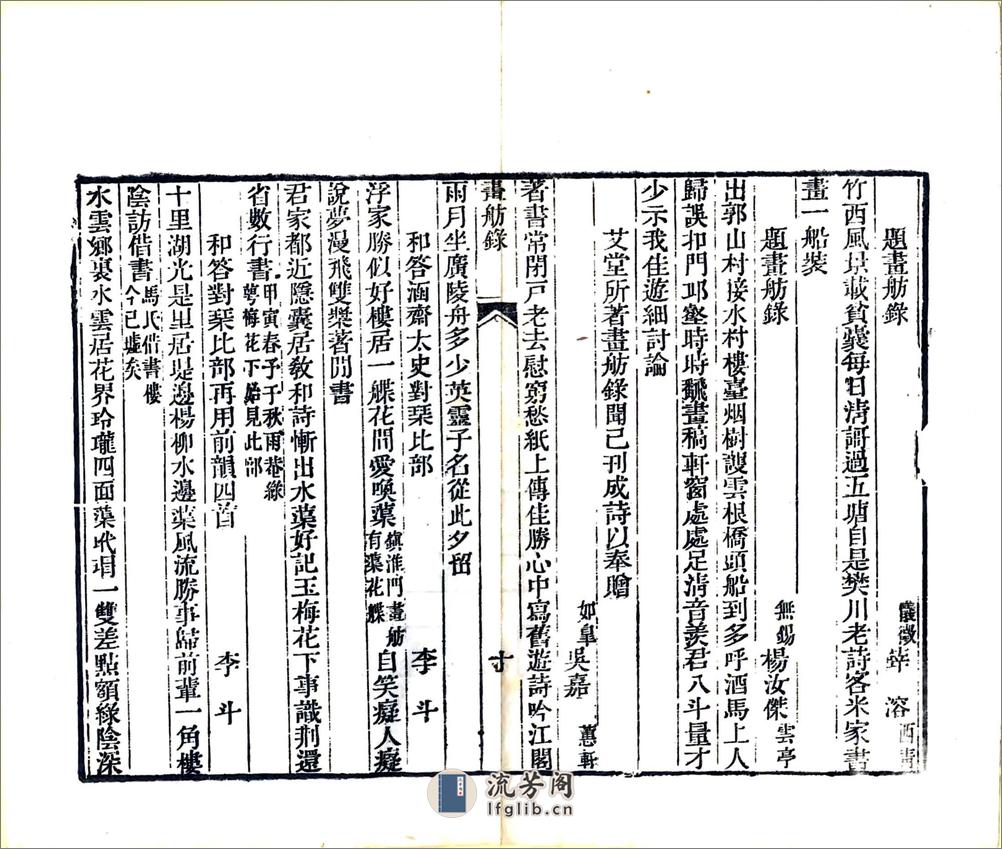 題畫舫錄
儀徵 溶 西
竹西風景載貧囊每日清謌過五塘自是樊川老詩客米家書
畫一船裝
題畫舫錄
無錫楊汝傑雲亭
出郭山村接水村樓臺烟樹護雲根橋頭船到多呼酒馬上人
歸誤扣門邱壑時時飜畫稿軒窗處處足淸音羨君八斗量才
少示我佳遊細討論
艾堂所著畫舫錄聞已刊成詩以奉贈
如皋吳嘉 蕙軒
著書常閉戸老去慰窮愁紙上傳佳勝心中寫舊遊詩吟江閣
畫舫錄
十
雨月坐廣陵舟多少英靈子名從此夕留
和答涵齋太史對琹比部
李斗
浮家勝似好樓居一艓花間愛喚蕖鎮淮門畫舫有蕖花艓自笑癡人癡
說夢漫飛雙槳著閒書
君家都近隱囊居敎和詩慚出水蕖好記玉梅花下事識荆還
省數行書甲寅春予于秋雨菴綠萼梅花下始見此部
和答對琹比部再用前韻四首
李斗
十里湖光是里居堤邊楊柳水邊蕖風流勝事歸前輩一角樓
陰訪借書馬氏借書樓今已墟矣
水雲鄉裏水雲居花界玲瓏四面蕖代瑁一雙差點額綠陰深
流芳阁
lfglib.cn